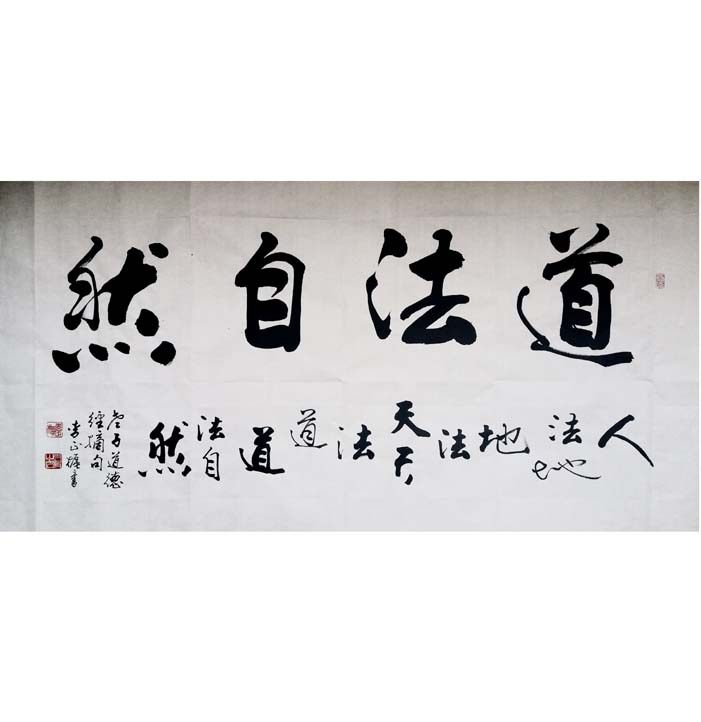 道法自然
人法地地法天天法道道法自然
老子道德
經摘句
李正書